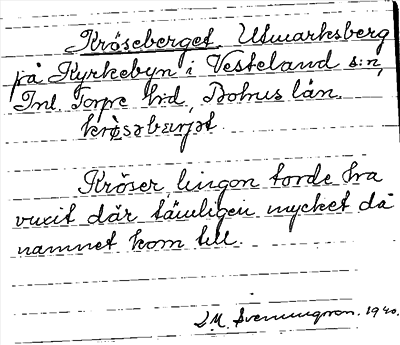 Kröseberget. Utmarksberg
på Kyrkebyn i Vesteland s:n,
Inl. Torpe h:d, Bohus län.
Kröser, lingon torde ha
vuxit där tämligen mycket då
namnet kom till.
J.M. Svenningson. 1940.